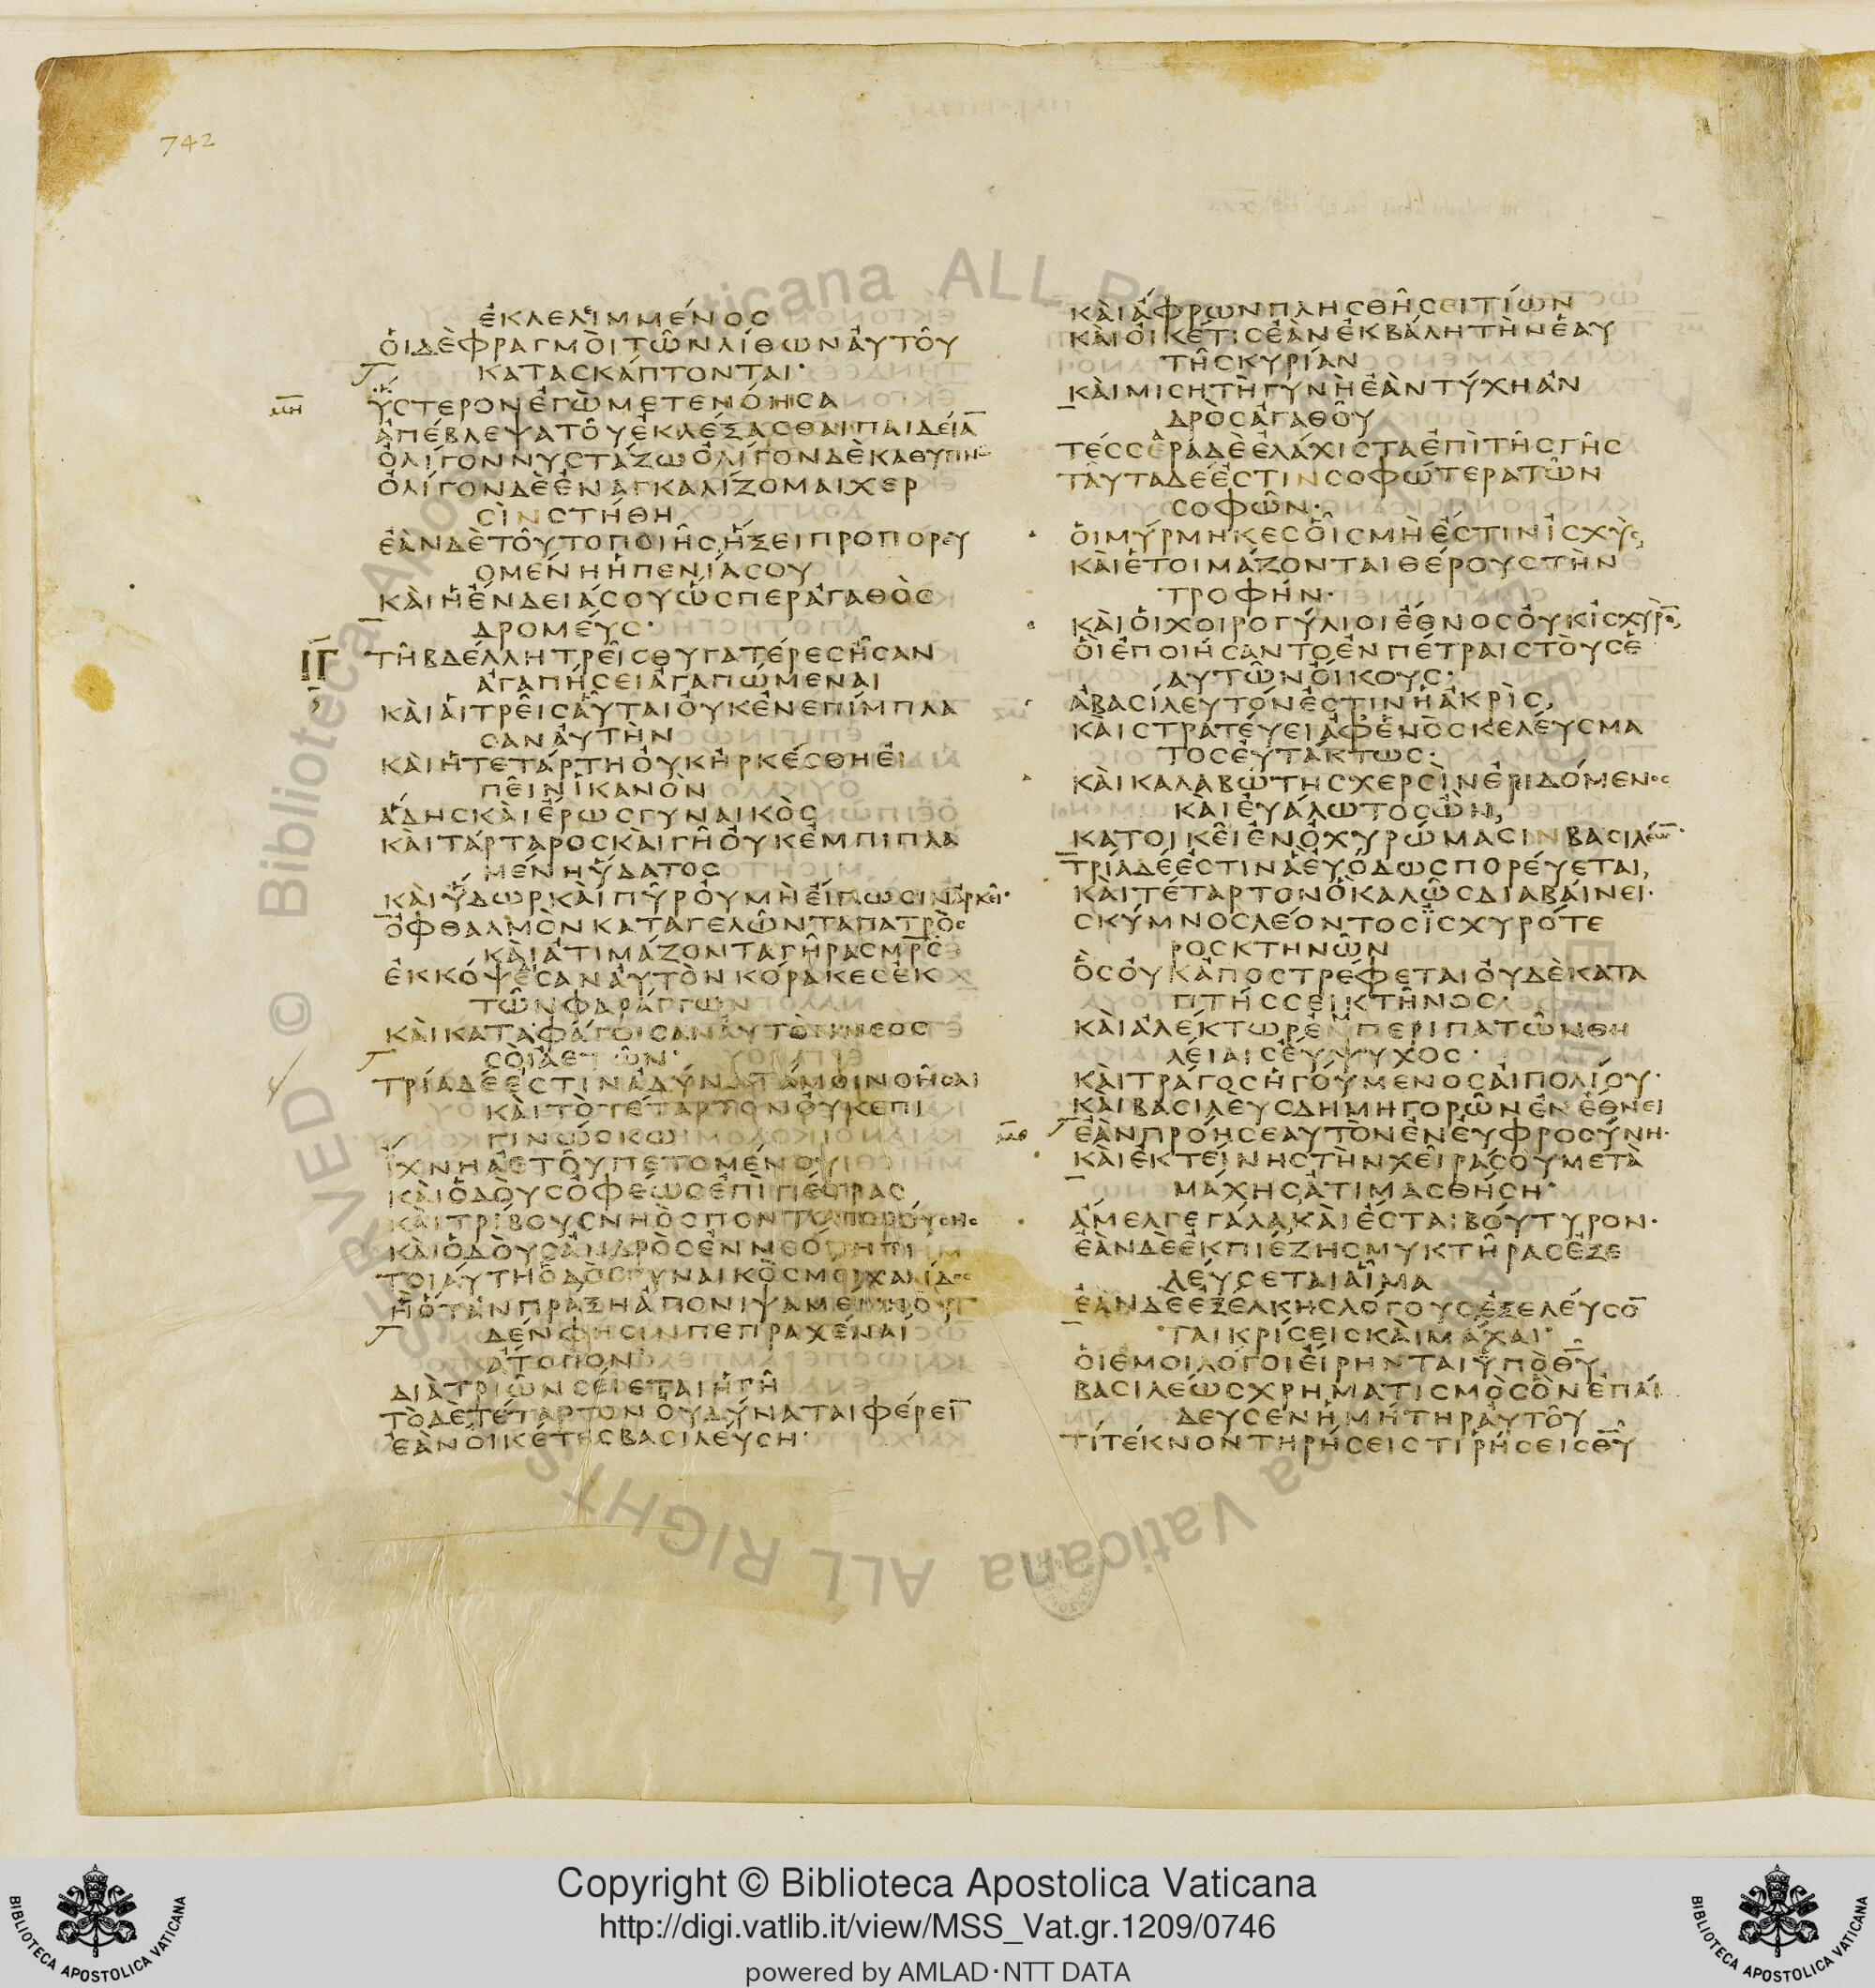 742
ἐκλελιμμένος
ὁι δὲ φραγμὸι τῶν λίθων ἀυτο͂υ
κατασκάπτονται·
μη
ὕστερον ἐγὼ μετενόησα
ἀπέβλεψα το͂υ ἐκλέξασθαι παιδείᾱ
ὀλίγον νυστάζω ὀλίγον δὲ καθυπν
ὀλίγον δὲ ἐναγκαλίζομαι χερ
σὶν στήθη
ἐὰν δὲ το͂υτο ποιῇς ἥξει προπορευ
ομένη ἡ πενία σου
κὰι ἡ ἔνδειά σου ὥσπερ ἀγαθὸς
δρομέυς·
ΙΓ
τῇ βδέλλῃ τρε͂ις θυγατέρες ἦσαν
ἀγαπήσει ἀγαπώμεναι
κὰι ἁι τρε͂ις ἆυται ὀυκ ἐνεπίμπλα
σαν ἀυτὴν
κὰι ἡ τετάρτη ὀυκ ἠρκέσθη ἐι
πε͂ιν ἱκανὸν
ἅδης κὰι ἔρως γυναικὸς
κὰι τάρταρος κὰι γῆ ὀυκ ἐμπιπλα
μένη ὕδατος
κὰι ὕδωρ κὰι πῦρ ὀυ μὴ ἔιπωσιν ἀρκε͂ι·
ὀφθαλμὸν καταγελῶντα πατρὸς
κὰι ἀτιμάζοντα γῆρας μρ̅ς
ἐκκόψαισαν ἀυτὸν κόρακες ἐκ
τῶν φαράγγων
κὰι καταφάγοισαν ἀυτὸν νεος
σὸι ἀετῶν·
τρία δέ ἐστιν ἀδύνατά μοι νοῆσαι
κὰι τὸ τέταρτον ὀυκ ἐπι
γινώσκω
ἴχνη ἀετο͂υ πετομένου
κὰι ὁδὸυς ὄφεως ἐπὶ πέτρας
κὰι τρίβους νηὸς ποντοπορόυσης
κὰι ὁδὸυς ἀνδρὸς ἐν νεότητι
τοιάυτη ὁδὸς γυναικὸς μοιχαλίδος
ἣ ὅταν πράξῃ ἀπονιψαμένη ὀυ
δέν φησιν πεπραχέναι
ἄτοπον
διὰ τριῶν σέιεται ἡ γῆ
τὸ δὲ τέταρτον ὀυ δύναται φέρεῑ
ἐὰν ὀικέτης βασιλέυσῃ·
κὰι ἄφρων πλησθῇ σειτίων
κὰι ὀικέτις ἐὰν ἐκβάλῃ τὴν ἑαυ
τῆς κυρίαν
κὰι μισητὴ γυνὴ ἐὰν τύχῃ ἀν
δρὸς ἀγαθο͂υ
τέσσερα δὲ ἐλάχιστα ἐπὶ τῆς γῆς
τᾶυτα δέ ἐστιν σοφώτερα τῶν
σοφῶν·
ὁι μύρμηκες ὁ͂ις μὴ ἔστιν ἰσχὺς
κὰι ἑτοιμάζονται θέρους τὴν
τροφήν·
κὰι ὁι χοιρογύλιοι ἔθνος ὀυκ ἰσχυρὸ̅
ὃι ἐποιήσαντο ἐν πέτραις τὸυς ἑ
αυτῶν ὄικους·
ἀβασίλευτόν ἐστιν ἡ ἀκρὶς,
κὰι στρατέυει ἀφ ἑνὸς κελέυσμα
τος ἐυτάκτως·
κὰι καλαβώτης χερσὶν ἐριδόμενος
κὰι ἐυάλωτος ὢν,
κατοικε͂ι ἐν ὀχυρώμασιν βασιλέω̅·
τρία δέ ἐστιν ἃ ἐυόδως πορέυεται,
κὰι τέταρτον ὃ καλῶς διαβάινει·
σκύμνος λέοντος ἰσχυρότε
ρος κτηνῶν
ὃς ὀυκ ἀποστρέφεται ὀυδὲ κατα
πτήσσει κτῆνος·
κὰι ἀλέκτωρ ἐνπεριπατῶν θη
λέιαις ἔυψυχος·
κὰι τράγος ἡγόυμενος ἀιπολίου·
κὰι βασιλὲυς δημηγορῶν ἐν ἔθνει
μθ
ἐὰν πρόῃ σεαυτὸν ἐν ἐυφροσύνῃ·
κὰι ἐκτέινῃς τὴν χε͂ιρά σου μετὰ
μάχης ἀτιμασθήσῃ·
ἄμελγε γάλα, κὰι ἔσται βόυτυρον·
ἐὰν δὲ ἐκπιέζῃς μυκτῆρας ἐξε
λέυσεται ἇιμα
ἐὰν δὲ ἐξέλκῃς λόγους ἐξελέυσο̅
ται κρίσεις κὰι μάχαι·
ὁι ἐμοὶ λόγοι ἔιρηνται ὑπὸ θ̅υ
βασιλέως χρηματισμὸς ὃν ἐπάι
δευσεν ἡ μήτηρ ἀυτο͂υ
τί τέκνον τηρήσεις τί ῥήσεις θ̅υ
Copyright © Biblioteca Apostolica Vaticana
http://digi.vatlib.it/view/MSS_Vat.gr.1209/0746
powered by AMLAD·NTT DATA
BIBLIOTECA APOSTOLICA VATICANA
BIBLIOTECA APOSTOLICA VATICANA